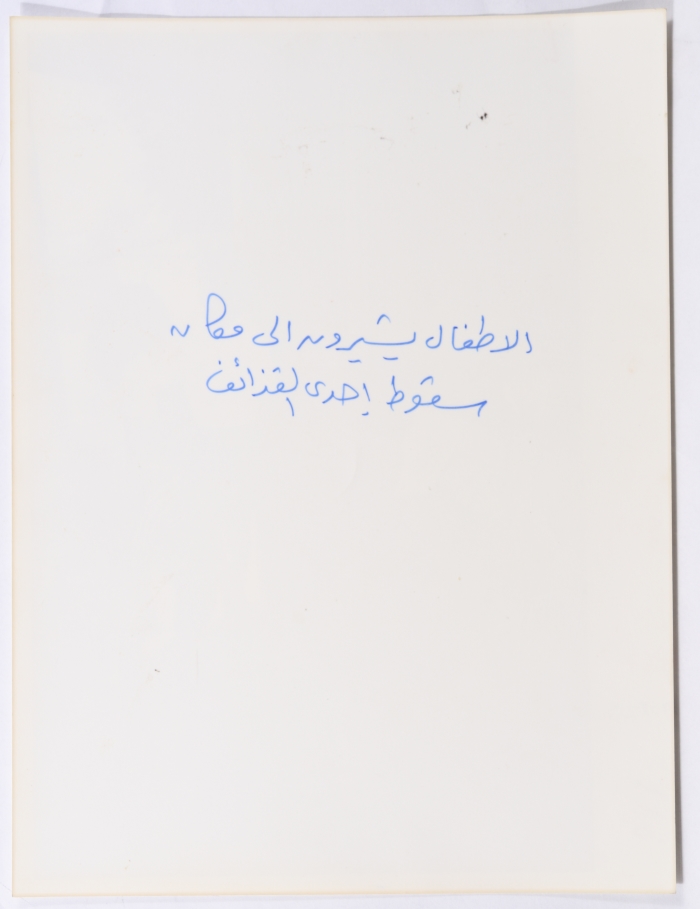 الاطفال يشيرون الى مكان
سقوط إحدى القذائف